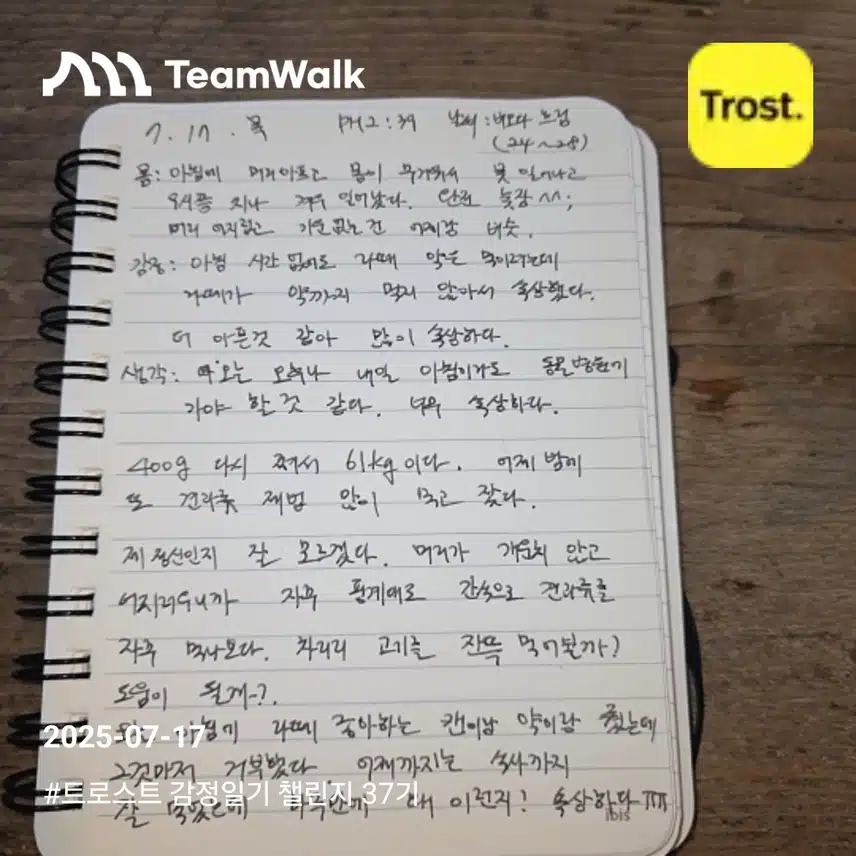 TeamWalk
Trost.
7.17.목 PM2:39 날씨:비오다 흐림
(24~28)
몸: 아침에 머리아프고 몸이 무거워서 못 일어나고
지나 겨우 일어났다. 완전 늦장^^;
머리 어지럽고 기운없는건 어제랑 비슷.
감정: 아침 시간 없어도 라떼 약은 먹이려는데
라떼가 약까지 먹지 않아서 속상했다.
더 아픈것 같아 많이 속상하다.
생각: 오늘 오후나 내일 아침이라도 동물병원
가야 할것 같다. 너무 속상하다.
400g 다시 쪄서 61kg이다. 어제 밤에
또 견과류 제법 많이 먹고 잤다.
제정신인지 잘 모르겠다. 머리가 개운치 않고
어지러우니까 자꾸 핑계대로 간식으로 견과류를
자주 먹나보다. 차라리 고기를 잔뜩 먹어볼까?
도움이 될게-?.
아침에 라떼 좋아하는 캔이랑 약이랑 줬는데
2025-07-17
그것마저 거부했다. 어제까지는 식사까지
#트로스트 감정일기 챌린지 37기
잘 먹었는데 하룻만에 왜 이런지? 속상하다ㅠㅠ
ibis